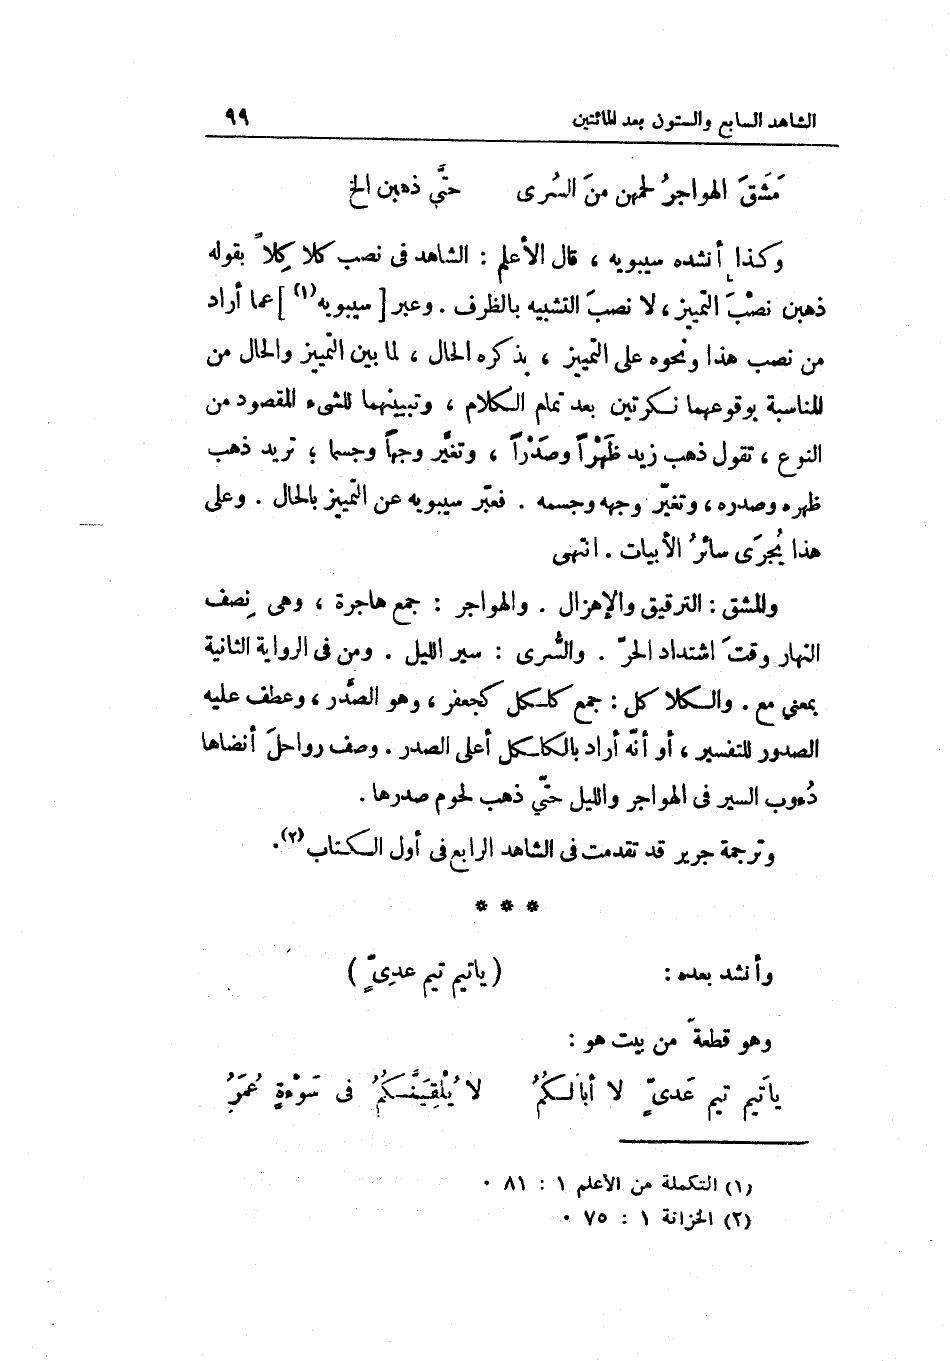 الشاهد السابع والستون بعد المائتين ٩٩
مَشَقَ الهواجرُ لحمهن منَ السُرى حتَّي ذهبن الخ
وكذا أنشده سيبويه ، قال الأعلم : الشاهد فى نصب كلا كِلاً بقوله
ذهبن نصْبَ التمييز ، لا نصبَ التشبيه بالظرف . وعبر [ سيبويه(١) ] عما أراد
من نصب هذا ونحوه على التمييز ، بذكره الحال ، لما بين التمييز والحال من
المناسبة بوقوعهما نكرتين بعد تمام الكلام ، وتبيينهما للشىء المقصود من
النوع ، تقول ذهب زيد ظَهْراً وصَدْراً ، وتغيَّر وجهاً وجسما ؛ تريد ذهب
ظهره وصدره ، وتغيّر وجهه وجسمه . فعبّر سيبويه عن التمييز بالحال . وعلى
هذا يُجرَى سائرُ الأبيات . انتهى
والمشق : الترقيق والإهزال . والهواجر : جمع هاجرة ، وهى نِصف
النهار وقتَ اشتداد الحرّ . والسُّرى : سير الليل . ومن فى الرواية الثانية
بمعني مع . والكلا كل : جمع كلكل كجعفر ، وهو الصَّدر ، وعطف عليه
الصدور للتفسير ، أو أنّه أراد بالكلكل أعلى الصدر . وصف رواحلَ أنضاها
دُءوب السير فى الهواجر والليل حتّي ذهب لحوم صدرها .
وترجمة جرير قد تقدمت فى الشاهد الرابع فى أول الكتاب(٢) .
* * *
وأنشد بعده : ( ياتيم تيم عدِىٍّ )
وهو قطعةٌ من بيت هو :
ياَتيم تيم عَدىٍّ لا أبالكُمُ لا يُلْقِيَنَّكمُ فى سَوْءةٍ عُمَرُ
(١) التكملة من الأعلم ١ : ٨١ .
(٢) الخزانة ١ : ٧٥ .